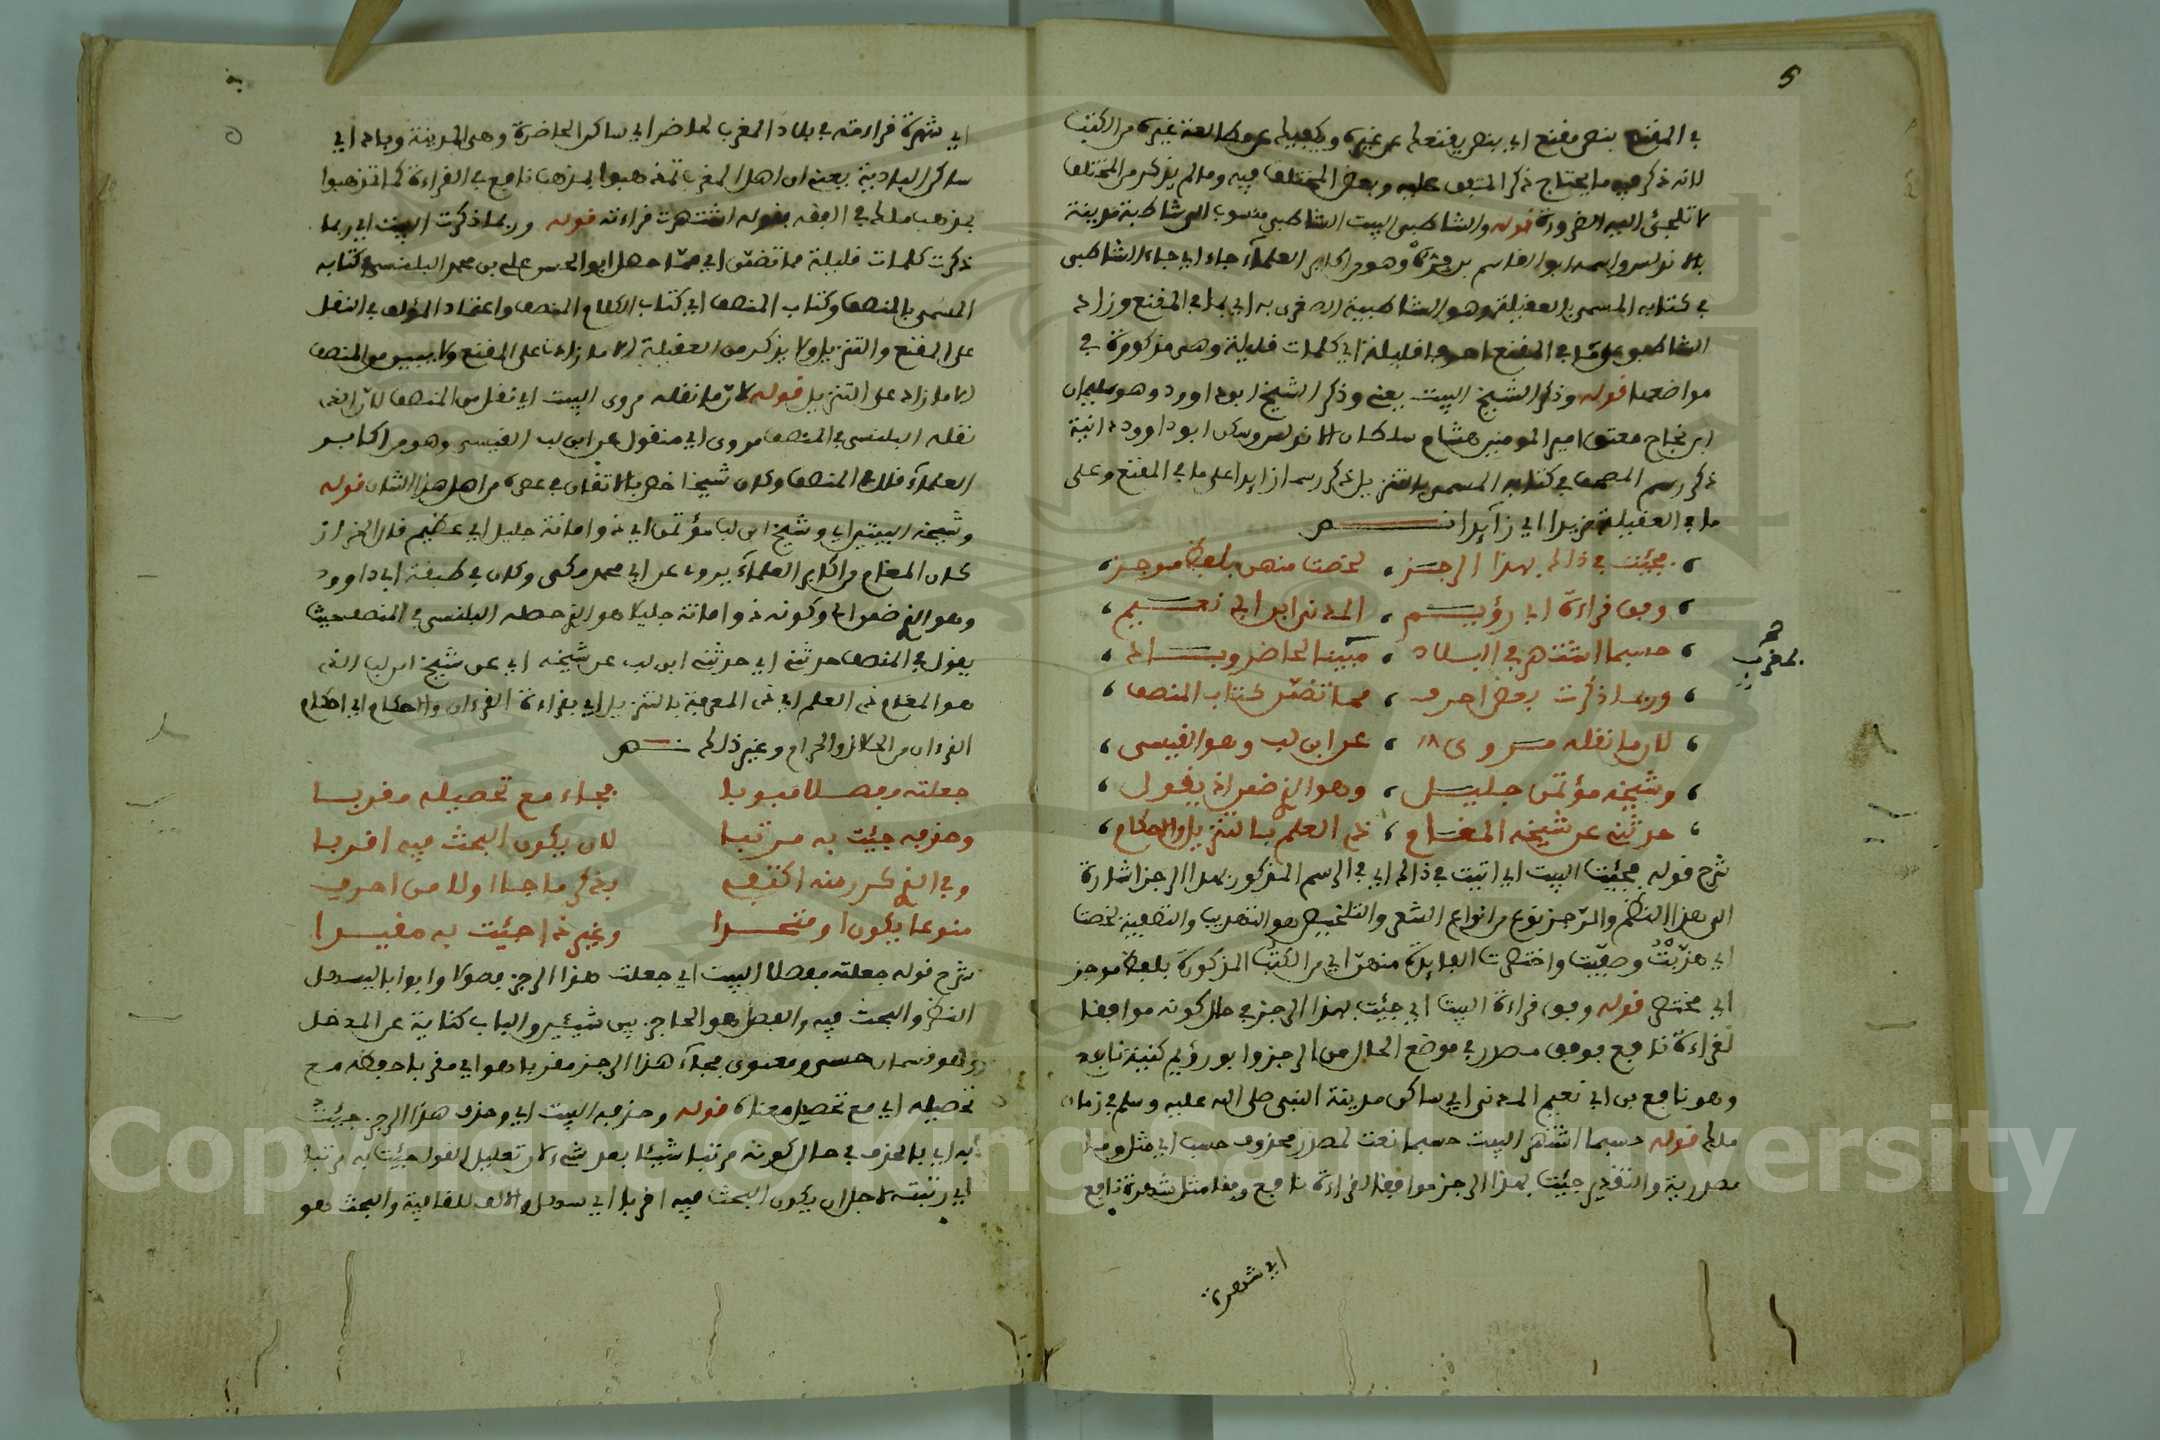 5
في المقنع بنص مقنع اي بنص يقنعك عن غيره ويكفيك عن مطالعة غيره من الكتب
لانه ذكر فيه ما يحتاج ذكر المتفق عليه وبعض المختلف فيه وما لم يذكر من المختلف
لا تلجئ اليه الضرورة قوله والشاطبي البيت الشاطبي منسوب الى شاطبة مدينة
بالاندلس واسمه ابو القاسم بن فيره وهو من اكابر العلمآء جاء اي جاء الشاطبي
في كتابه المسمى بالعقيلة وهو الشاطبية الصغرى به اي بما في المقنع وزاد
الشاطبي على ما في المقنع احرفا قليلة اي كلمات قليلة وهي مذكورة في
مواضعها قوله وذكر الشيخ البيت يعني وذكر الشيخ ابو داوود وهو سليمان
ابن نجاح معتوق امير المومنين هشام سلطان الاندلس وسكن ابو داوود دانية
ذكر رسم المصحف في كتابه المسمى بالتنزيل ذكر رسما زايدا على ما في المقنع وعلى
ما في العقيلة مزيدا اي زآيدا نص
فجئت في ذاك بهذا الرجز ، لخصت منهن بلفظ موجز ،
وفق قراءة ابي رؤيم ، المدني ابن ابي نعيم ،
حسبما اشتهر في البلاد ، مبينا لحاضر وباد ،
بمغرب
وربما ذكرت بعض احرف ، مما تضمن كتاب المنصف
لان ما نقله مروي ، عن ابن لب وهو القيسي ،
وشيخه مؤتمن جليل ، وهو الذي ضمن اذ يقول ،
حدثني عن شيخه المغامي ، ذي العلم بالتنزيل والاحكام ،
شرح قوله فجئت البيت اي اتيت في ذاك اي في الرسم المذكور بهذا الرجز اشارة
الى هذا النظم والرجز نوع من انواع الشعر والتلخيص هو التهذيب والتصفية لخصت
اي هذبت وصفيت واختصرت الفايدة منهن اي من الكتب المذكورة بلفظ موجز
اي مختصر قوله وفق قراءة البيت اي جئت بهذا الرجز في حال كونه موافقا
لقراءة نافع فوفق مصدر في موضع الحال من الرجز وابو رؤيم كنية نافع
وهو نافع بن ابي نعيم المدني اي ساكن مدينة النبي صلى الله عليه وسلم في زمان
مالك قوله حسبما اشتهر البيت حسبما نعت لمصدر محذوف حسب اي مثل وما
مصدرية والتقدير جئت بهذا الرجز موافقا لقراءة نافع وفقا مثل شهرة نافع
اي شهرة
اي شهرة قراءته في بلاد المغرب لحاضر اي ساكن الحاضرة وهي المدينة وباد اي
ساكن البادية يعني ان اهل المغرب تمذهبوا بمذهب نافع في القراءة كما تمذهبوا
بمذهب مالك في الفقه بقوله اشتهرت قراءته قوله وربما ذكرت البيت اي ربما
ذكرت كلمات قليلة مما تضمن اي مما حصل ابو الحسن علي بن محمد البلنسي في كتابه
المسمى بالمنصف وكتاب المنصف اي كتاب الكلام المنصف واعتماد المؤلف في النقل
على المقنع والتنزيل ولا يذكر من العقيلة الا ما زادت على المقنع ولا يبين من المنصف
الا ما زاد على التنزيل قوله لان ما نقله مروي البيت اي نقل من المنصف لان الذي
نقله البلنسي في المنصف مروي اي منقول عن ابن لب القيسي وهو من اكابر
العلمآء قال في المنصف وكان شيخا خص بالاتقان في عصره من اهل هذا الشان قوله
وشيخه البيتين اي وشيخ ابن لب مؤتمن اي ذو امانة جليل اي عظيم قال الخراز
كان المغامي من اكابر العلمآء يروي عن ابي محمد مكي وكان في طبقة ابي داوود
وهو الذي ضمن اي وكونه ذو امانة جليلا هو الذي حصله البلنسي في المنصف حيث
يقول في المنصف حدثني اي حدثني ابن لب عن شيخه اي عن شيخ ابن لب الذي
هو المغامي ذي العلم اي ذي المعرفة بالتنزيل اي بقراءة القرءان والاحكام اي احكام
القرءان من الحلال والحرام وغير ذلك نص
جعلته مفصلا مبوبا فجاء مع تحصيله مقربا
وحذفه جئت به مرتبا لان يكون البحث فيه اقربا
وفي الذي كرر منه اكتفي بذكر ما جا اولا من احرف
منوعا يكون او متحدا وغير ذا جئت به مقيدا
شرح قوله جعلته مفصلا البيت اي جعلت هذا الرجز فصولا وابوابا ليسهل
النظر والبحث فيه والفصل هو الحاجز بين شيئين والباب كناية عن المدخل
وهو قسمان حسي ومعنوي فجآء هذا الرجز مقربا هو اي مقربا حفظه مع
تحصيله اي مع تحصيل معناه قوله وحذفه البيت اي وحذف هذا الرجز جئت
به اي بالحذف في حال كونه مرتبا شيئا بعد شيء لان تعليل لقوله جئت به مرتبا
اي رتبته لاجل ان يكون البحث فيه اقربا اي سهل والالف للقافية والبحث هو